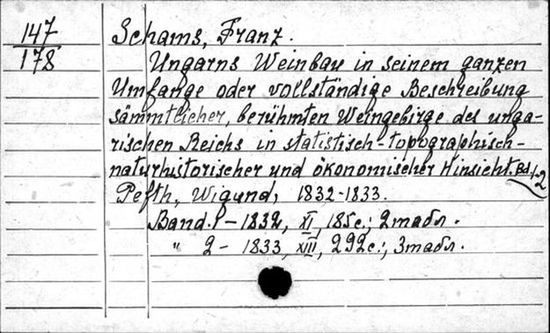 147
178
Schams, Franz.
Ungarns Weinbau in seinem ganzen
Umfange oder vollständige Beschreibung
sämmtlicher, berühmten Weingebirge des unga-
rischen Reichs in statistisch-topographisch-
naturhistorischer und ökonomischer Hinsicht. Bd 1-2
Pesth, Wigand, 1832-1833.
Band. 1 - 1832, XI, 185c.; 2 табл.
" 2 - 1833, XIII, 292c.; 3 табл.